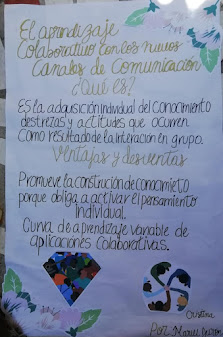 El aprendizaje
Colaborativo con los nuevos
Canales de Comunicación
¿Qué es?
Es la adquisición individual del conocimiento
destrezas y actitudes que ocurren
como resultado de la interación en grupo.
Ventajas y desventas
Promueve la construción de conocimieto
porque obliga a activar el pensamiento
individual.
Curva de aprendizaje variable de
aplicaciones colaborativas.
Cristina
Por: